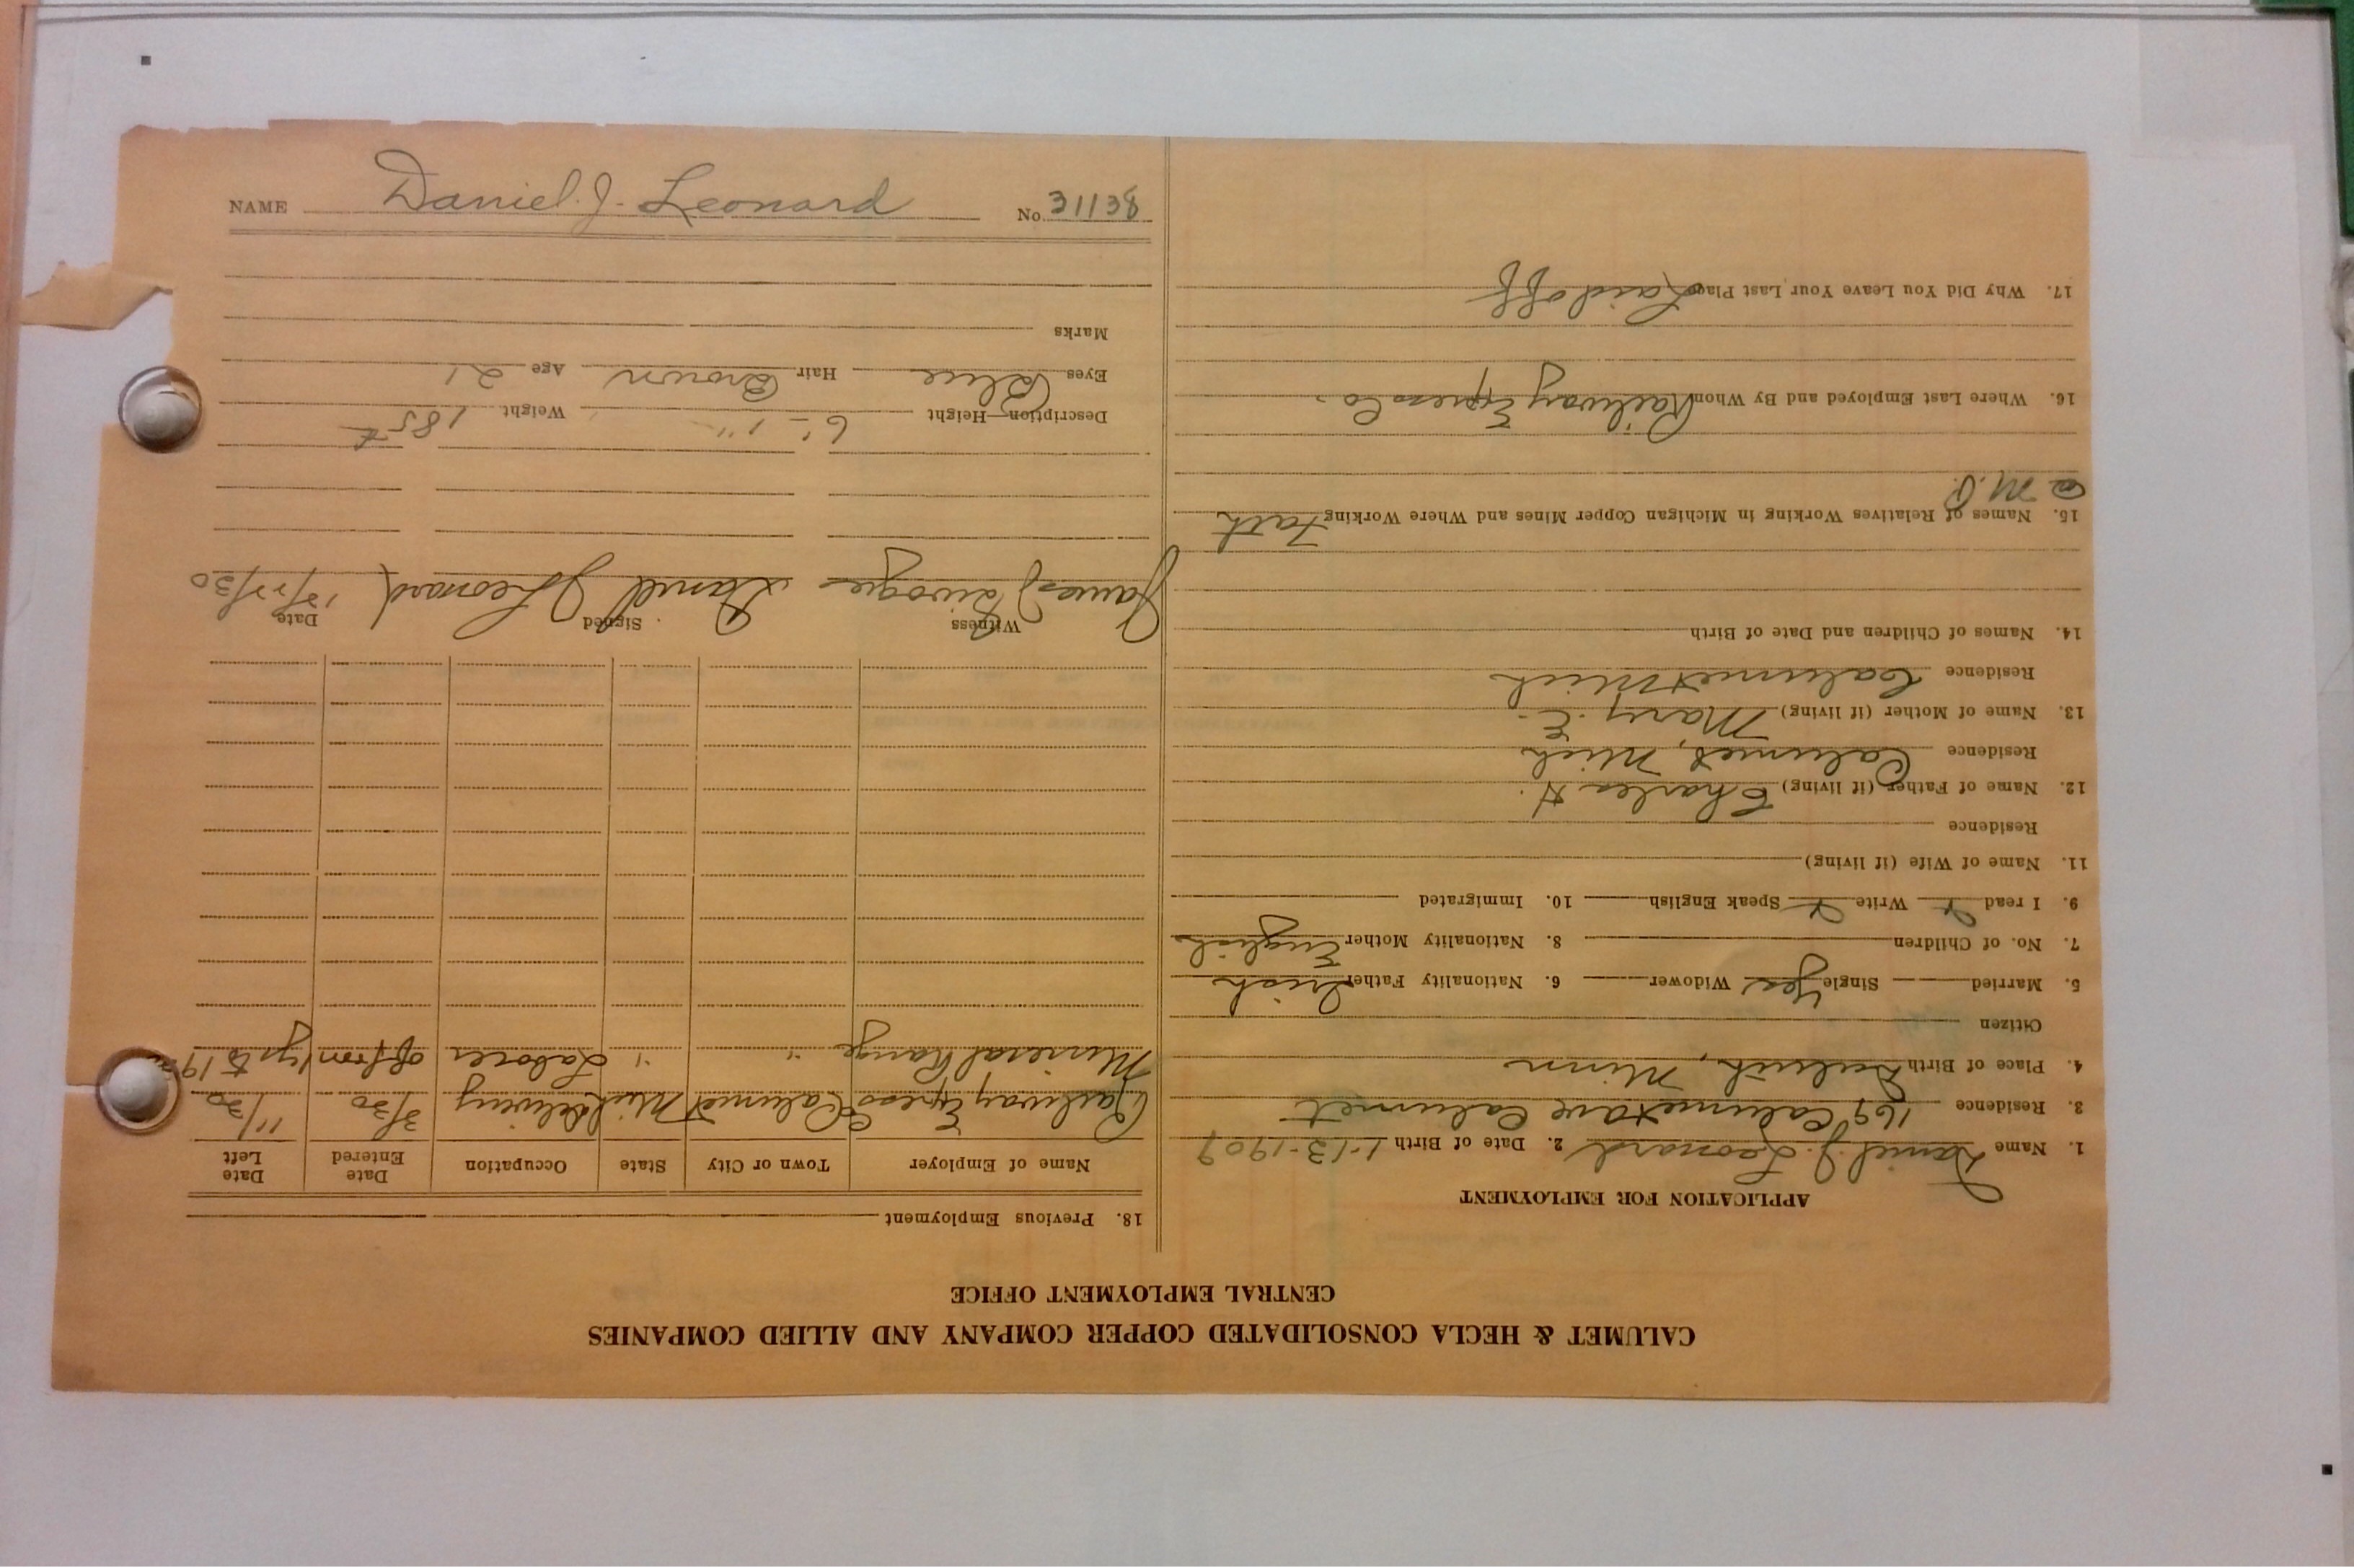 CALUMET & HECLA CONSOLIDATED COPPER COMPANY AND ALLIED COMPANIES
CENTRAL EMPLOYMENT OFFICE
APPLICATION FOR EMPLOYMENT
1. Name Daniel J. Leonard 2. Date of Birth 1-13-1909
3. Residence 169 Calumet ave Calumet
4. Place of Birth Duluth, Minn
Citizen
5. Married Single Yes Widower 6. Nationality Father Irish
7. No. of Children 8. Nationality Mother English
9. I read Write Speak English 10. Immigrated
11. Name of Wife (if living)
Residence
12. Name of Father (if living) Charles H.
Residence Calumet, Mich
13. Name of Mother (if living) Mary E.
Residence Calumet Mich
14. Names of Children and Date of Birth
15. Names of Relatives Working in Michigan Copper Mines and Where Working Fath
16. Where Last Employed and By Whom Railway Express Co.
17. Why Did You Leave Your Last Place Laid off
18. Previous Employment
Name of Employer Town or City State Occupation Date Entered Date Left
Railway Express Calumet Mich 3/30 11/30
Mineral Range " " Laborer off & on up to 19
Witness Signed Date
James Daniel J Leonard /30
Description—Height 6'-1" Weight 185
Eyes Blue Hair Brown Age 21
Marks
NAME Daniel J. Leonard No. 31138